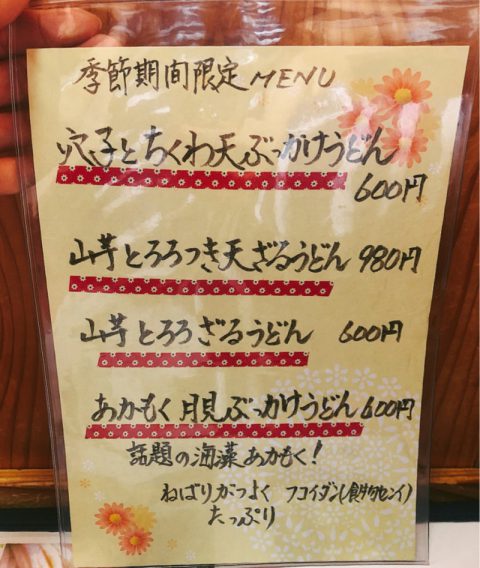 季節期間限定MENU
穴子とちくわ天ぶっかけうどん
600円
山芋とろろつき天ざるうどん 980円
山芋とろろざるうどん 600円
あかもく月見ぶっかけうどん 600円
話題の海藻あかもく!
ねばりがつよく フコイダン(食物センイ)
たっぷり